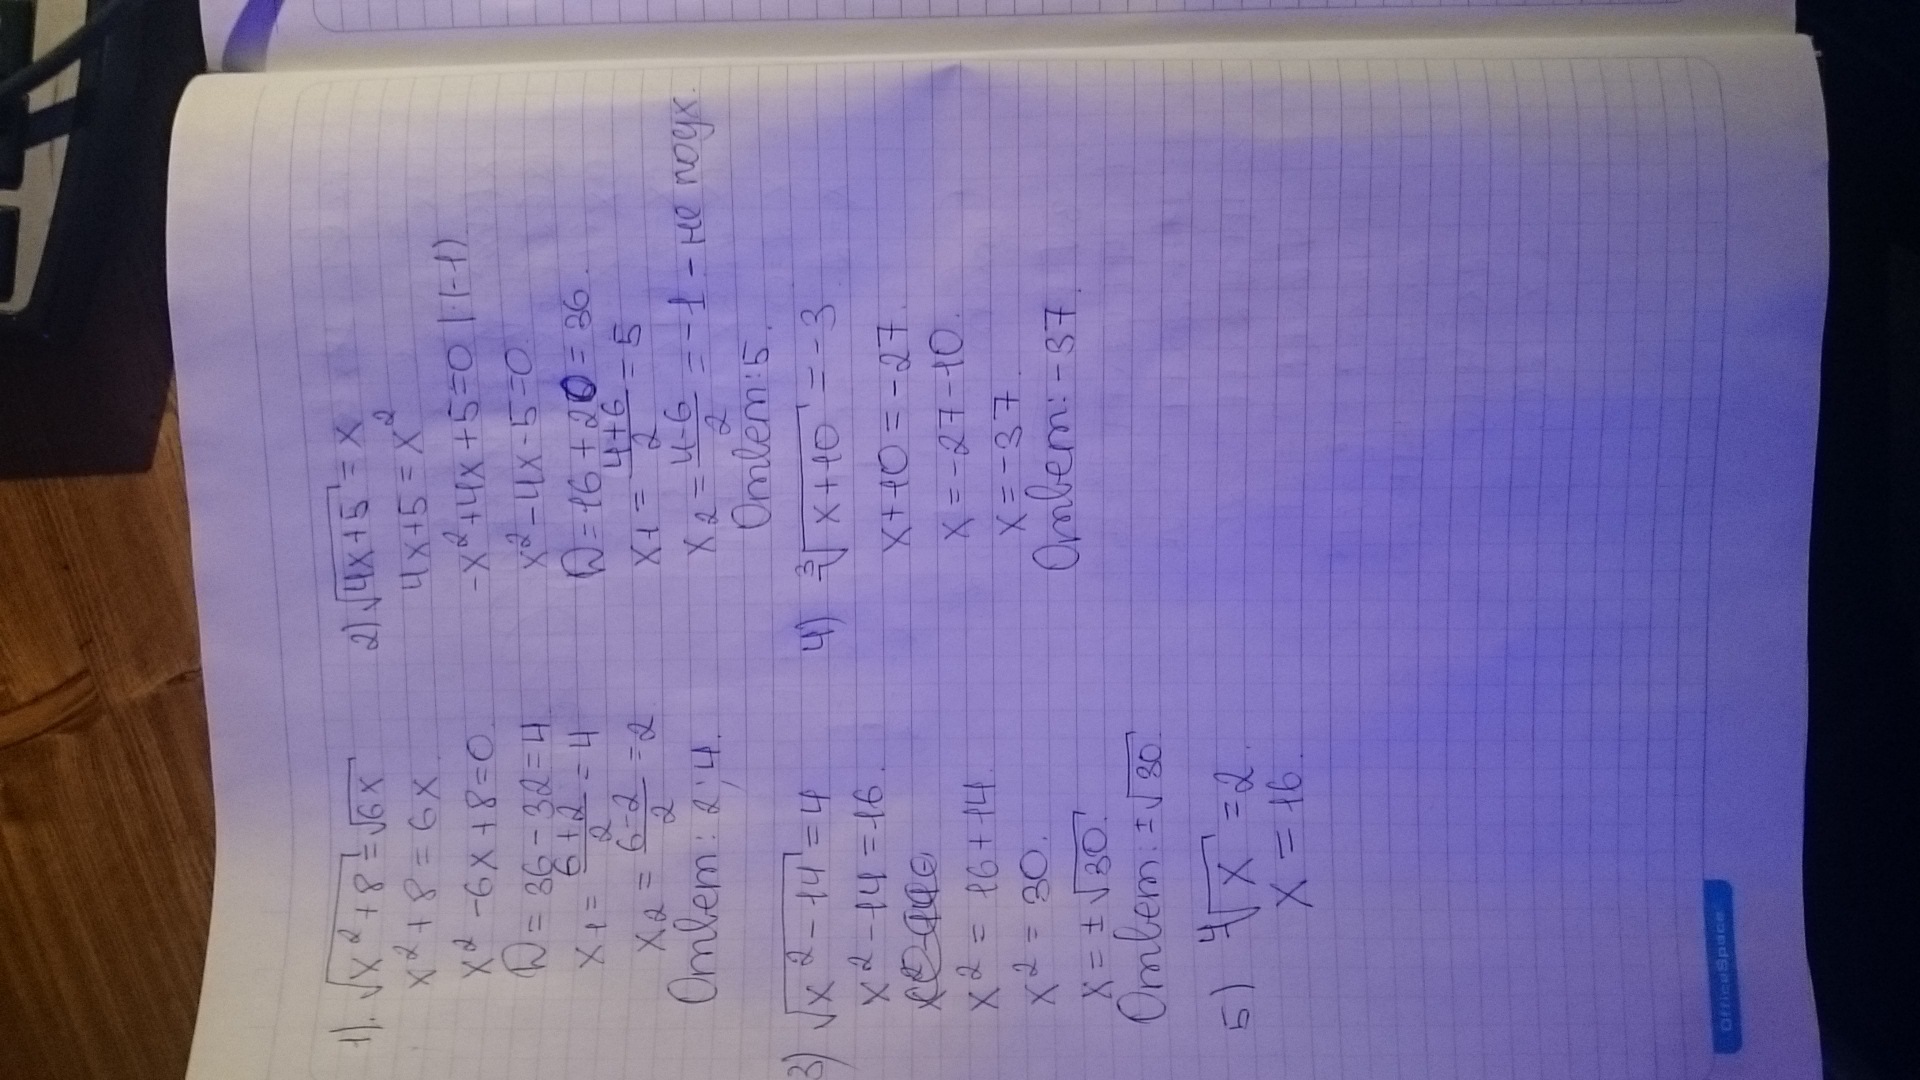 1). √(x²+8) = √(6x)
x²+8 = 6x.
x²-6x+8=0.
D = 36-32=4
x₁ = (6+2)/2 = 4
x₂ = (6-2)/2 = 2
Ответ: 2; 4.
2) √(4x+5) = x
4x+5 = x²
-x²+4x+5=0 |·(-1)
x²-4x-5=0.
D=16+20=36.
x₁ = (4+6)/2 = 5
x₂ = (4-6)/2 = -1 - не подх.
Ответ: 5.
3) √(x²-14) = 4
x²-14=16.
x² = 16+14.
x² = 30.
x = ±√30.
Ответ: ±√30.
4) ³√(x+10) = -3
x+10=-27.
x=-27-10.
x=-37.
Ответ: -37.
5) ⁴√x = 2.
x = 16.
OfficeSpace